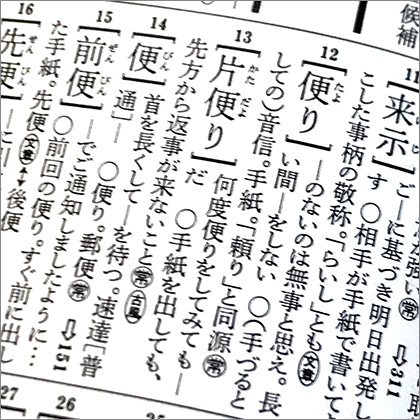 候補
11
[来示]
らい
こ―に基づき明日出発し
す ○相手が手紙で書いて
こした事柄の敬称。「らいし」とも 文章
⇨311
12
[便り]
たよ
―のないのは無事と思え。長
い間―をしない ○(手づると
しての)音信。手紙。「頼り」と同源 常
13
[片便り]
かただよ
何度便りをしてみても―
だ ○手紙を出しても、
先方から返事が来ないこと 常 古風
14
[便]
びん
首を長くして―を待つ。速達[普
通]― ○便り。郵便 常
⇨151
15
[前便]
ぜんびん
―でご通知しましたように…
○前回の便り。すぐ前に出し
た手紙。先便 文章 ↔後便
16
[先便]
せんびん
25
26
27